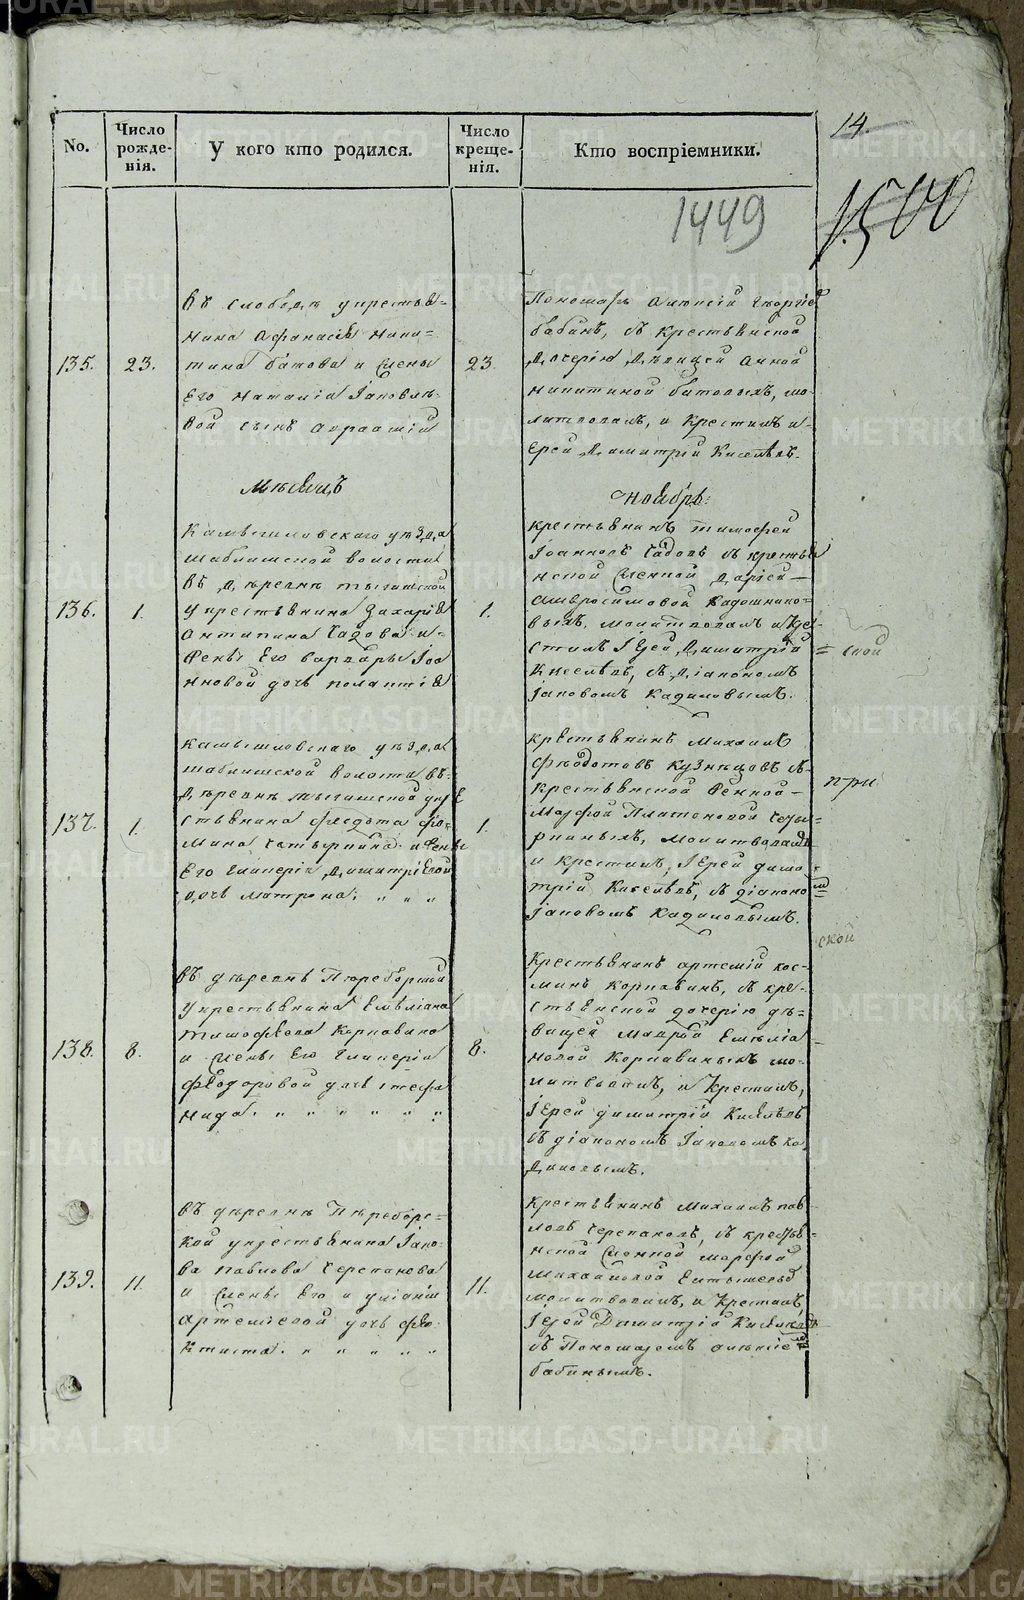 14.
1500
No.
Число рожде-нія.
У кого кто родился.
Число креще-нія.
Кто воспріемники.
1449
135.
23.
въ слободѣ у крестья=
нина Афанасія Ники=
тина батова и жены
Его Наталіи Іаковле-
вой сынъ Авраамій
23
Пономарь Алексій Георгіевъ
бабинъ, съ крестьянской
дочерію дѣвицей Анной
Никитиной батовыхъ, мо-
литвовалъ, и крестилъ и-
ерей Димитрій Киселевъ.
Мѣсяцъ
Ноябрь:
136.
1.
Камышловскаго уѣзда
шаблишской волости
въ деревнѣ тыгишской
у крестьянина Захарія
Антипина Гадова и
жены Его варвары Іоа
нновой дочь
1.
крестьянинъ тимофей
Іоанновъ Гадовъ съ крестья
нской женкой даріей
Амвросимовой Кадошнико-
выхъ, молитвовалъ и кре-
стилъ Іерей Димитрій
Киселевъ, съ діакономъ
Іаковомъ Кадиковымъ.
= ской
137.
1.
Камышловскаго уѣзда
шаблишской волости въ
деревнѣ тыгишской у кре
стьянина Федота Фо-
мина и жены
Его Гликеріи Димитріевой
дочь матрона.
1.
крестьянинъ Михаилъ
Феодотовъ Кузнецовъ съ
крестьянской женкой
Марфой Платоновой
молитвовалъ
и крестилъ, Іерей дими
трій Киселевъ, съ діаконо
Іаковомъ Кадиковымъ.
при
ской
138.
8.
въ деревнѣ Переборской
у крестьянина Емеліана
тимофеева Корнавина
и жены Его Гликеріи
Феодоровой дочь стефа
нида.
8.
Крестьянинъ артемій кос-
минъ Корнавинъ, съ кре-
стьянской дочерію дѣ-
вицей Маврой Емеліа
новой Корнавиныхъ мо-
литвовалъ, и крестилъ,
Іерей димитрій Киселевъ
съ діакономъ Іаковомъ Ка
диковымъ.
139.
11.
въ деревнѣ Переборс=
кой у крестьянина Іако-
ва павлова Черепанова
и жены Его иуліаніи
Артеміевой дочь Фео-
ктиста.
11.
Крестьянинъ Михаилъ пав
ловъ Черепановъ, съ крестья=
нской женкой марфой
Михайловой
молитвовалъ, и крестилъ,
Іерей Димитрій Киселевъ
съ Пономаремъ алексіемъ
бабинымъ.
METRIKI.GASO-URAL.RU